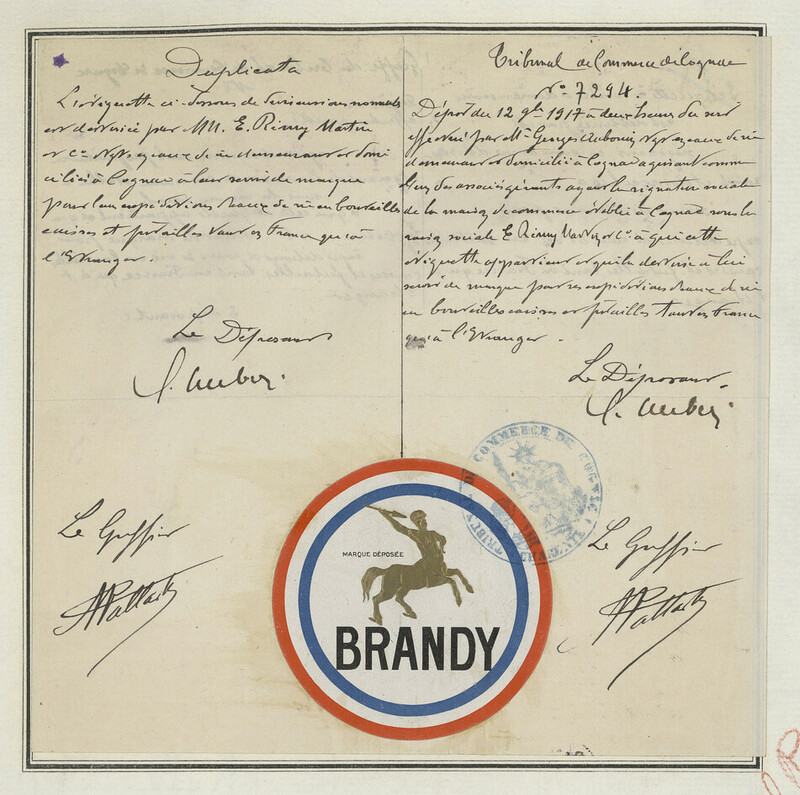 Duplicata
L'étiquette ci-dessous de dimensions normales
est déposée par MM. E. Rémy Martin
et Cie Négts eaux de vie demeurant et domi
ciliés à Cognac à leur servir de marque
pour leurs expéditions d'eaux de vie en bouteilles
caisses et futailles tant en France qu'à
l'Etranger.
Le Déposant
Le Greffier
Tribunal de Commerce de Cognac
No 7294.
Dépôt du 12 9bre 1917 à deux heures du soir
effectué par Mr Georges Auboin Négt eaux de vie
demeurant et domicilié à Cognac agissant comme
l'un des associés gérants ayant la signature sociale
de la maison de commerce établie à Cognac sous la
raison sociale E. Rémy Martin et Cie à qui cette
étiquette appartient et qu'elle destine à lui
servir de marque pour ses expéditions d'eaux de vie
en bouteilles caisses et futailles tant en France
qu'à l'Etranger.
Le Déposant.
Le Greffier
TRIBUNAL DE COMMERCE DE COGNAC
MARQUE DÉPOSÉE
BRANDY